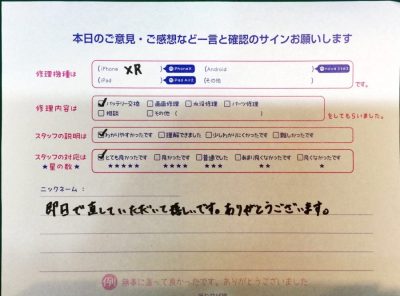 本日のご意見・ご感想など一言と確認のサインお願いします
修理機種は
(iPhone XR ) iPhoneX (Android )
(iPad ) iPad Air2 (その他 )
です。
修理内容は
バッテリー交換 画面修理 水没修理 パーツ修理
相談 その他( )
をしてもらいました。
スタッフの説明は
わかりやすかったです 理解できました 少しわかりにくかったです 難しかったです
スタッフの対応は
★星の数★
とても良かったです 良かったです 普通でした あまり良くなかったです 良くなかったです
★★★★★ ★★★★ ★★★ ★★ ★
ニックネーム：
即日で直していただいて嬉しいです。ありがとうございます。
例 無事に直って良かったです。ありがとうございました